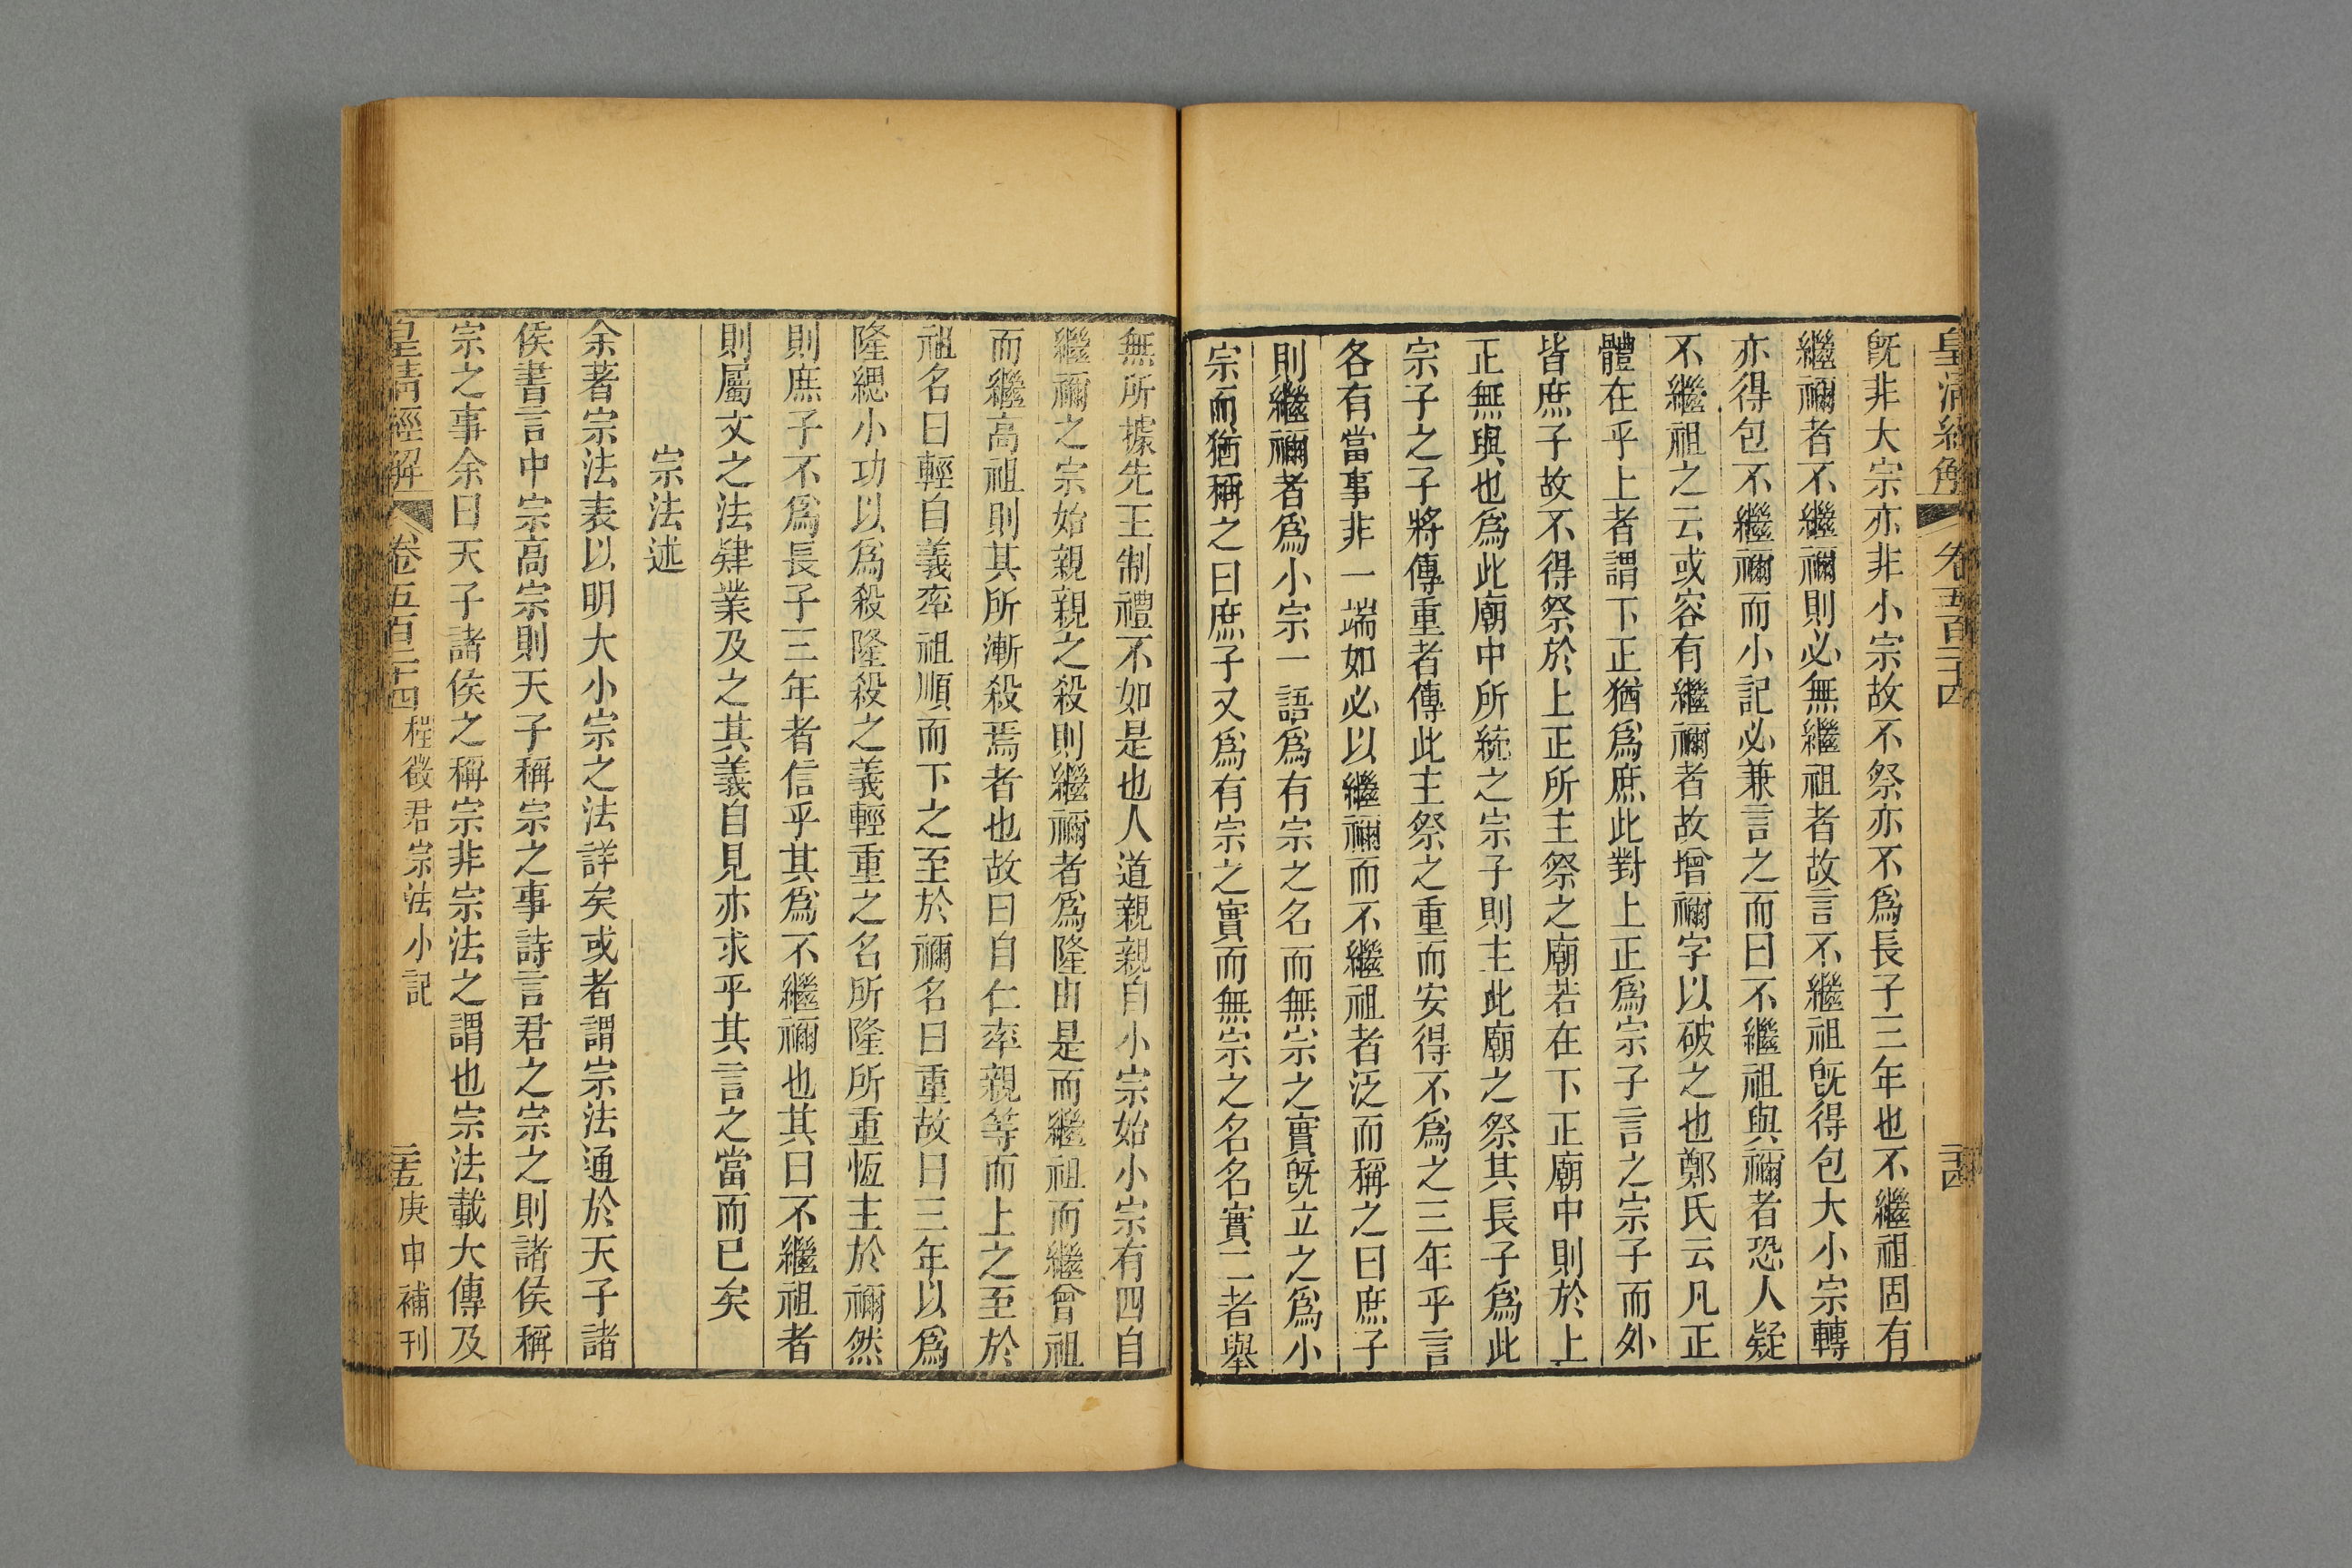 皇清經解 卷五百二十四 二十四
旣非大宗亦非小宗故不祭亦不爲長子三年也不繼祖固有
繼禰者不繼禰則必無繼祖者故言不繼祖旣得包大小宗轉
亦得包不繼禰而小記必兼言之而曰不繼祖與禰者恐人疑
不繼祖之云或容有繼禰者故增禰字以破之也鄭氏云凡正
體在乎上者謂下正猶爲庶此對上正爲宗子言之宗子而外
皆庶子故不得祭於上正所主祭之廟若在下正廟中則於上
正無與也爲此廟中所統之宗子則主此廟之祭其長子爲此
宗子之子將傳重者傳此主祭之重而安得不爲之三年乎言
各有當事非一端如必以繼禰而不繼祖者泛而稱之曰庶子
則繼禰者爲小宗一語爲有宗之名而無宗之實旣立之爲小
宗而猶稱之曰庶子又爲有宗之實而無宗之名名實二者舉
無所據先王制禮不如是也人道親親自小宗始小宗有四自
繼禰之宗始親親之殺則繼禰者爲隆由是而繼祖而繼曾祖
而繼高祖則其所漸殺焉者也故曰自仁率親等而上之至於
祖名曰輕自義率祖順而下之至於禰名曰重故曰三年以爲
隆緦小功以爲殺隆殺之義輕重之名所隆所重恆主於禰然
則庶子不爲長子三年者信乎其爲不繼禰也其曰不繼祖者
則屬文之法肄業及之其義自見亦求乎其言之當而已矣
宗法述
余著宗法表以明大小宗之法詳矣或者謂宗法通於天子諸
侯書言中宗高宗則天子稱宗之事詩言君之宗之則諸侯稱
宗之事余曰天子諸侯之稱宗非宗法之謂也宗法載大傳及
皇清經解 卷五百二十四 程徵君宗法小記 二十五 庚申補刊